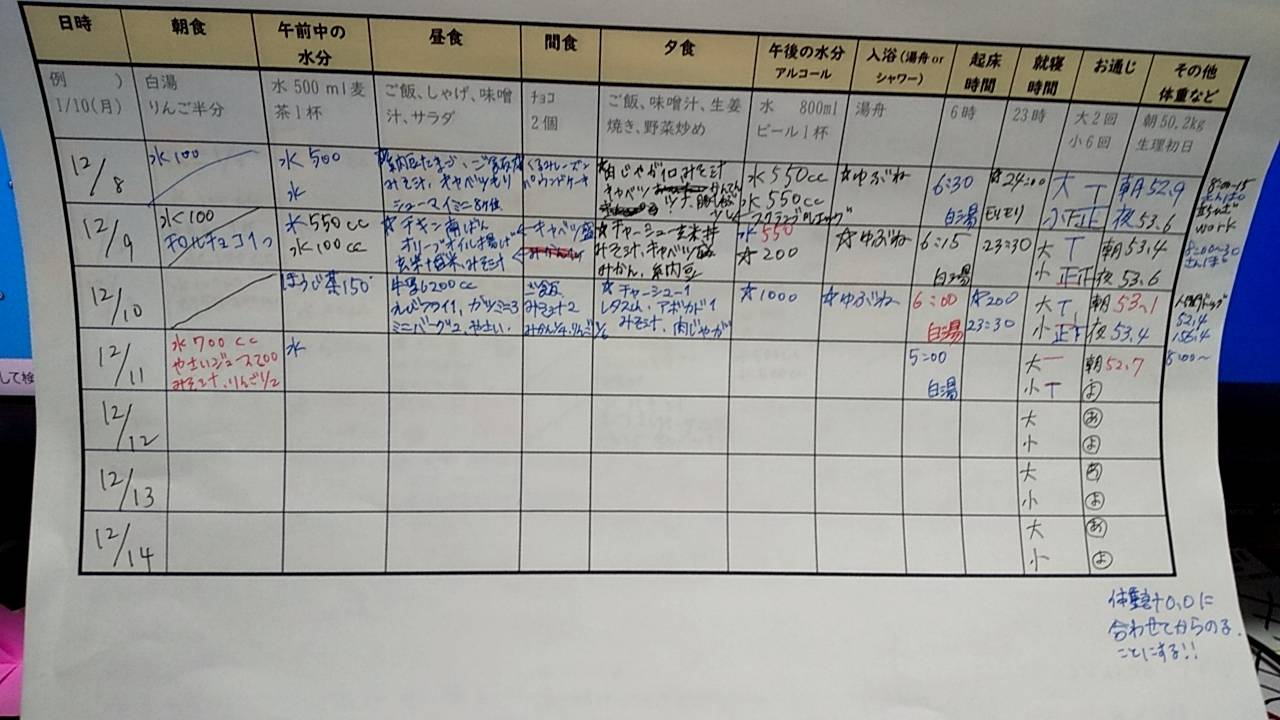 日時 朝食 午前中の水分 昼食 間食 夕食 午後の水分 アルコール 入浴(湯舟orシャワー) 起床時間 就寝時間 お通じ その他体重など
例 ) 白湯 水 500 ml麦 ご飯、しゃげ、味噌 チョコ ご飯、味噌汁、生姜 水 800ml 湯舟 6時 23時 大2回 朝50.2kg
1/10(月) りんご半分 茶1杯 汁、サラダ 2個 焼き、野菜炒め ビール1杯 小6回 生理初日
12/8 水100 水 500 くるみレーズン 肉じゃが みそ汁 水 550cc ☆ゆぶね 6:30 24:00 大 T 朝 52.9 8:00-15
水 みそ汁、キャベツ パウンドケーキ キャベツ 水 550cc 白湯 小 正正 夜 53.6
シューマイミニ ツナ work
12/9 水100 水 550cc ☆チキン南ばん キャベツ ☆チャーシュー玄米丼 水 550 ☆ゆぶね 6:15 23:30 大 T 朝 53.4
水 100cc オリーブオイル揚げ みそ汁、キャベツ ☆ 200 白湯 小 正正 夜 53.6
玄米 みそ汁 みかん、納豆
12/10 ほうじ茶150 牛乳200cc ご飯 ☆チャーシュー1 ☆1000 ☆ゆぶね 6:00 ☆200 大 T 朝 53.1 人間ドック
えびフライ1、ガツミニ3 みそ汁2 レタス、アボカド1 白湯 23:30 小 正T 夜 53.4 52.4
ミニバーグ2、やさい みかん りんご みそ汁、肉じゃが 156.4
12/11 水 700cc 水 5:00 大 一 朝 52.7 8:00~
やさいジュース200 白湯 小 T よ
みそ汁、りんご1/2
12/12 大 あ
小 よ
12/13 大 あ
小 よ
12/14 大 あ
小 よ
体重計0.0に
合わせてからのる
ことにする!!
して検